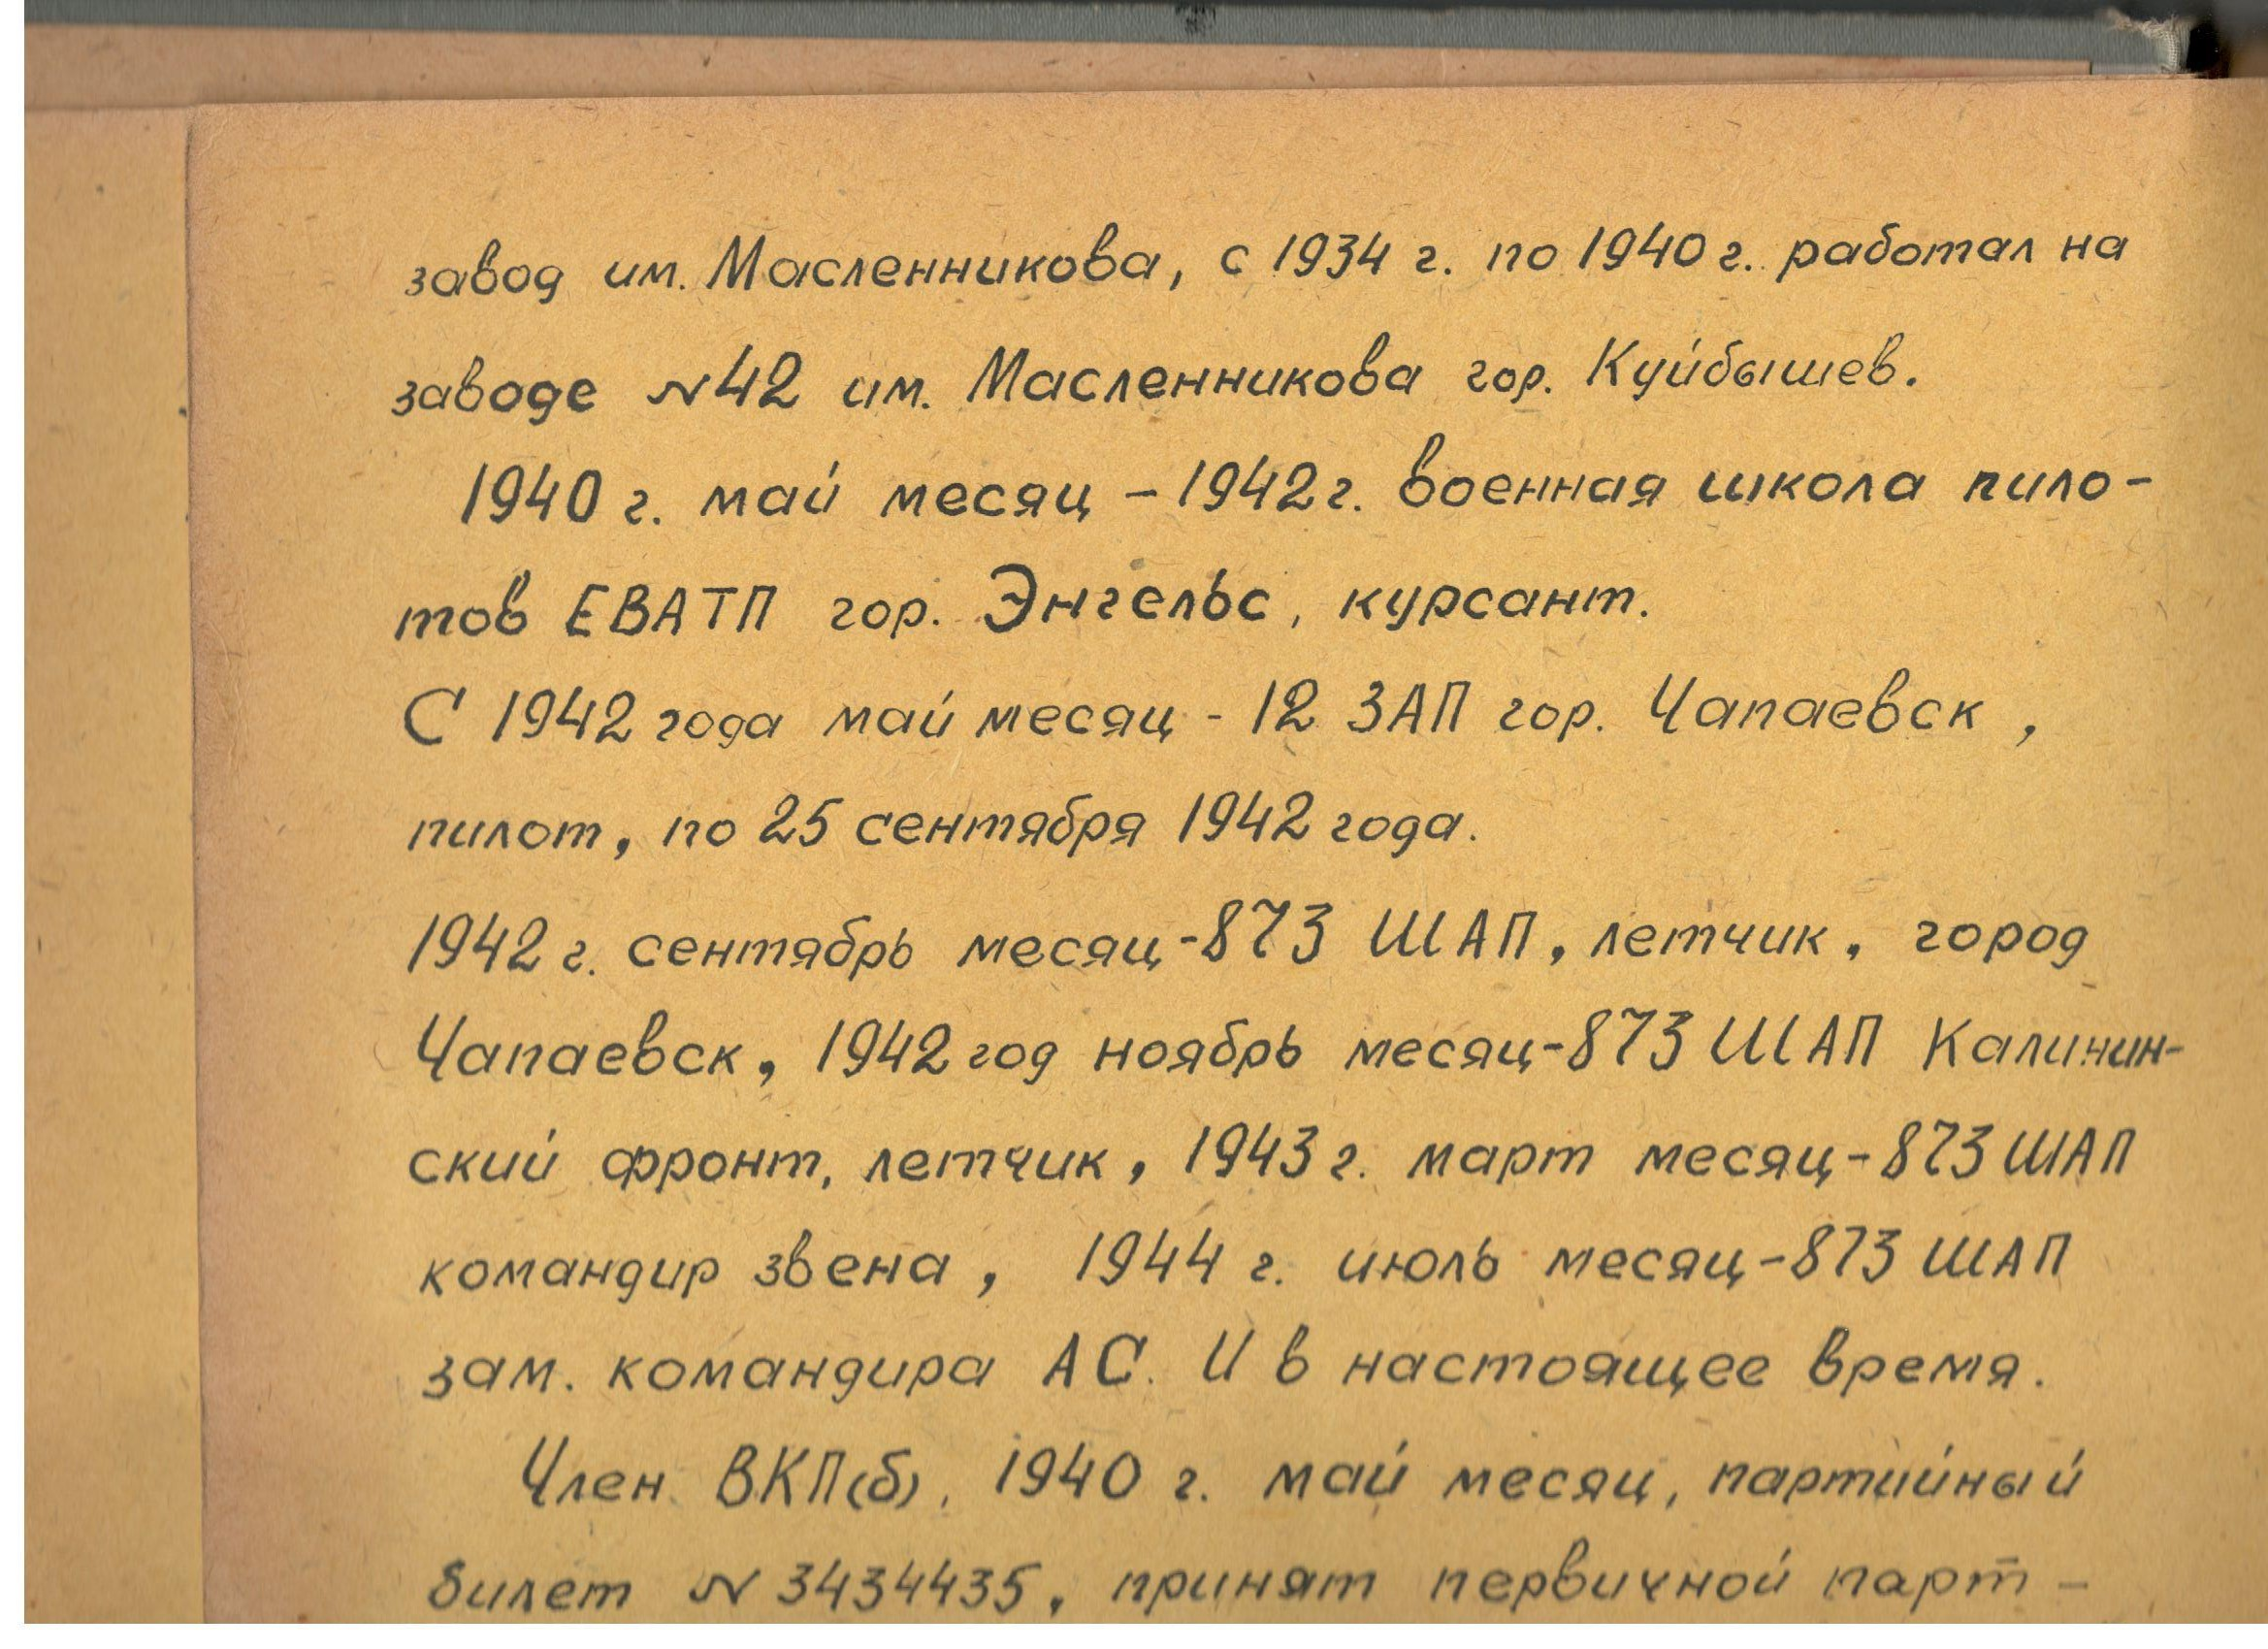 завод им. Масленникова, с 1934 г. по 1940 г. работал на
заводе №42 им. Масленникова гор. Куйбышев.
1940 г. май месяц - 1942 г. военная школа пило-
тов ЕВАТП гор. Энгельс, курсант.
С 1942 года май месяц - 12 ЗАП гор. Чапаевск,
пилот, по 25 сентября 1942 года.
1942 г. сентябрь месяц - 873 ШАП, летчик, город
Чапаевск, 1942 год ноябрь месяц - 873 ШАП Калинин-
ский фронт, летчик, 1943 г. март месяц - 873 ШАП
командир звена, 1944 г. июль месяц - 873 ШАП
зам. командира АС. И в настоящее время.
Член ВКП(б), 1940 г. май месяц, партийный
билет № 3434435, принят первичной парт-